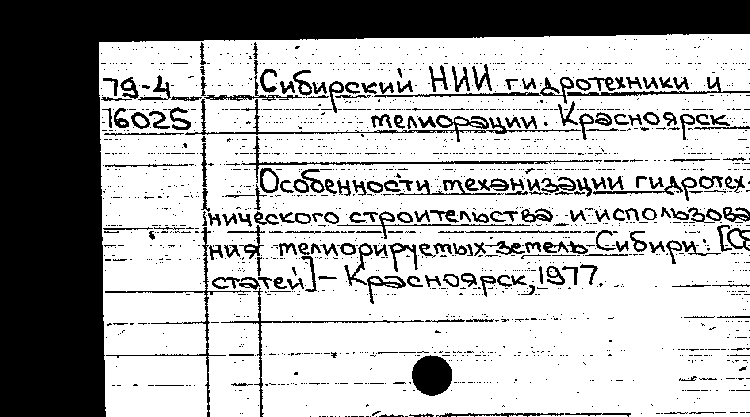 79-4 Сибирский НИИ гидротехники и
16025 мелиорации. Красноярск
Особенности механизации гидротех-
нического строительства и использова
ния мелиорируемых земель Сибири: [Сб
статей] – Красноярск, 1977.